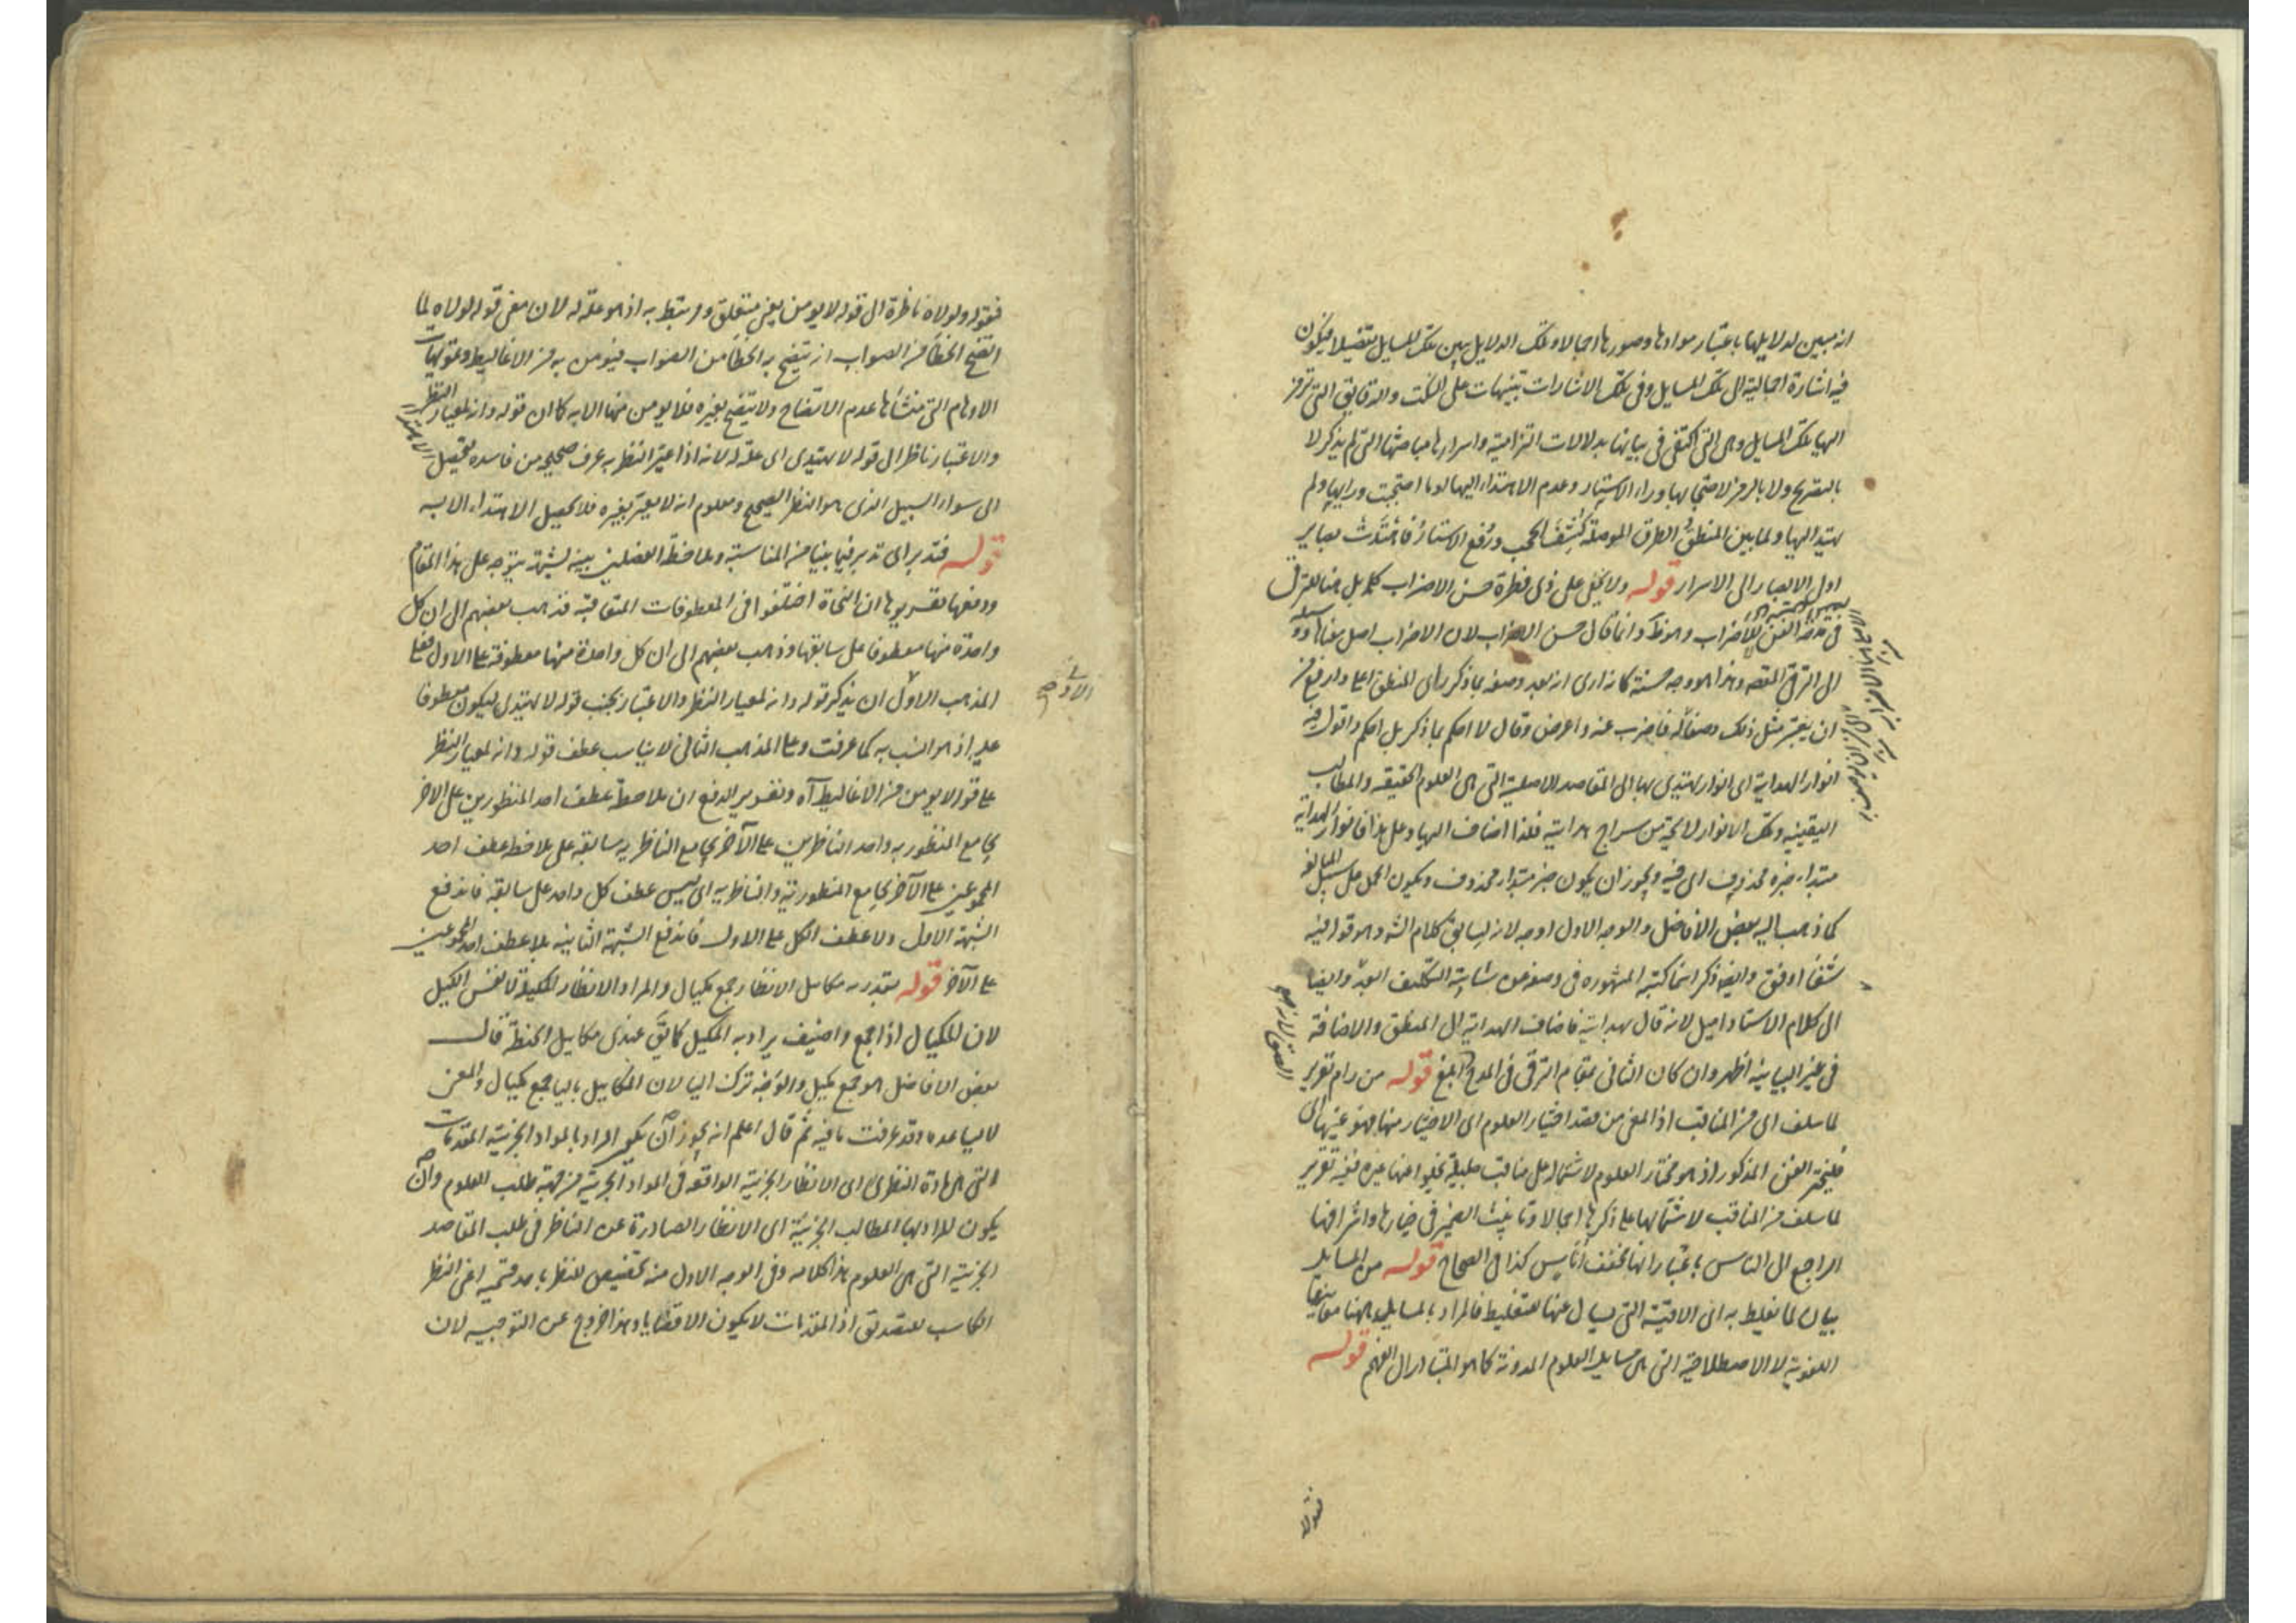 انه مبين لدلايلها باعتبار موادها وصورها اجمالا وتلك الدلايل يبين تلك المسايل تفصيلا فيكون
فيه اشارة اجمالية الى تلك المسايل وفى تلك الاشارات تنبيهات على النكت والدقايق التى ترمز
اليها تلك المسايل وهى التى اكتفى فى بيانها بدلالات التزامية واسرارها مباحثها التى لم يذكر لا
بالتصريح ولا بالرمز لاحتجابها وراء الاستتار وعدم الاهتداء اليها لو ما احتجبت ورايها ولم
يهتد اليها ولما بين المنطق الطرق الموصلة كشف الحجب ورفع الاستار فاهتدت بصاير
اولى الابصار الى الاسرار قوله ولا يخفى على ذى فطرة حسن الاضراب كلمة بل هنا للترقى
فى مدح الفن للاضراب وانما قال حسن الاضراب لان الاضراب اصل معناها
الى الترقى القصد وهذا هو وجه حسنه كانه ارى انه بعد وصفه بما ذكر راى المنطق اعلى وارفع من
ان يعتبر مثل ذلك وصفا له فاضرب عنه واعرض وقال لا احكم بما ذكر بل احكم واقول فيه
انوار الهداية اى انوار يهتدى بها الى المقاصد الاصلية التى هى العلوم الحقيقه والمطالب
اليقينيه وتلك الانوار لايحة من سراج هدايته فلذا اضاف اليها وعلى هذا فانوار الهداية
مبتداء خبره محذوف اى فيه ويجوز ان يكون خبر مبتداء محذوف ويكون الحمل على سبيل المبالغه
كما ذهب اليه بعض الافاضل والوجه الاول اوجه لانه لسابق كلام الشه وهو قوله فيه
شفا اوفق وايضه ذكر اسما كتبه المشهوره فى وصفه من شايبة التكليف ابعد وايضا
الى كلام الاستاد اميل لانه قال بهدايته فاضاف الهداية الى المنطق والاضافة
فى غير البيانيه اظهر وان كان الثانى بمقام الترقى فى المدح ابلغ قوله من رام تقرير
لما سلف اى من المناقب اذ المعنى من قصد اختيار العلوم اى الاختيار منها فهو عينها اى
فليختر الفن المذكور اذ هو مختار العلوم لاشتماله على مناقب جليلة يخلو عنها غيره ففيه تقرير
لما سلف من المناقب لاشتمالها على ذكرها اجمالا وتانيث الضمير فى خيارها واشرافها
الراجع الى الناس باعتبار انها مخفف اناس كذا فى الصحاح قوله من المسايل
بيان لما يغلط به اى الاقيسة التى يسال عنها للتغليط فالمراد بالمسايل ههنا معانيها
اللغوية لا الاصطلاحية التى هى مسايل العلوم المدونة كما هو المتبادر الى الفهم قوله
فقوله
فقوله ولولاه ناظرة الى قوله لا يومن يعنى متعلق ومرتبط به اذ هو علة له لان معنى قوله لولاه لما
اتضح الخطأ من الصواب انه يتضح به الخطأ من الصواب فيومن به من الاغاليط وتمويهات
الاوهام التى منشأها عدم الاتضاح ولا يتضح بغيره فلا يومن منها الا به كما ان قوله وانه لمعيار النظر
والاعتبار ناظر الى قوله لا يهتدى اى علة له لانه اذا عير النظر به عرف صحيحه من فاسده فيحصل الاهتداء
الى سواء السبيل الذى هو النظر الصحيح ومعلوم انه لا يعير بغيره فلا يحصل الاهتداء الا به
قوله فتدبر اى تدبر فيما بينا من المناسبة وملاحظة الفصلين بينه لشبهة يتوجه على هذا المقام
ودفعها تقريرها ان النحاة اختلفوا فى المعطوفات المتعاقبة فذهب بعضهم الى ان كل
واحدة منها معطوفا على سابقها وذهب بعضهم الى ان كل واحدة منها معطوفة على الاول فعلى
المذهب الاول ان يذكر قوله وانه لمعيار النظر والاعتبار بجنب قوله لا يهتدى ليكون معطوفا
الاولى صح
عليه اذ هو انسب به كما عرفت وعلى المذهب الثانى لا يناسب عطف قوله وانه لمعيار النظر
على قوله لا يومن من الاغاليط آه وتقرير الدفع ان ملاحظة عطف احد المنظورين على الاخر
بجامع المنظورية واحد الناظرين على الآخر بجامع الناظرية سابقة على ملاحظة عطف احد
المجموعين على الآخر بجامع المنظورية والناظرية اى ليس عطف كل واحد على سابقه فاندفع
الشبهة الاولى ولا عطف الكل على الاول فاندفع الشبهة الثانيه بل عطف احد المجموعين
على الآخر قوله مكايل الانظار جمع مكيال والمراد الانظار المكيلة لا نفس الكيل
لان المكيال اذا جمع واضيف يراد به المكيل كما يق عندى مكاييل الحنطة قال
بعض الافاضل هو جمع مكيل والوجه ترك اليا لان المكاييل باليا جمع مكيال والمعنى
لا يساعده وقد عرفت ما فيه ثم قال اعلم انه يجوز ان يكون المراد بالمواد الجزئية المقدمات
التى هى مادة النظر اى الانظار الجزئية الواقعه فى المواد الجزئية من جهة طلب العلوم وان
يكون المراد بها المطالب الجزئية اى الانظار الصادرة عن الناظر فى طلب المقاصد
الجزئية التى هى العلوم هذا كلامه وفى الوجه الاول منه تخصيص للنظر باحد قسميه اعنى النظر
الكاسب للتصديق اذ المقدمات لا يكون الا قضايا وهذا خروج عن التوجيه لان